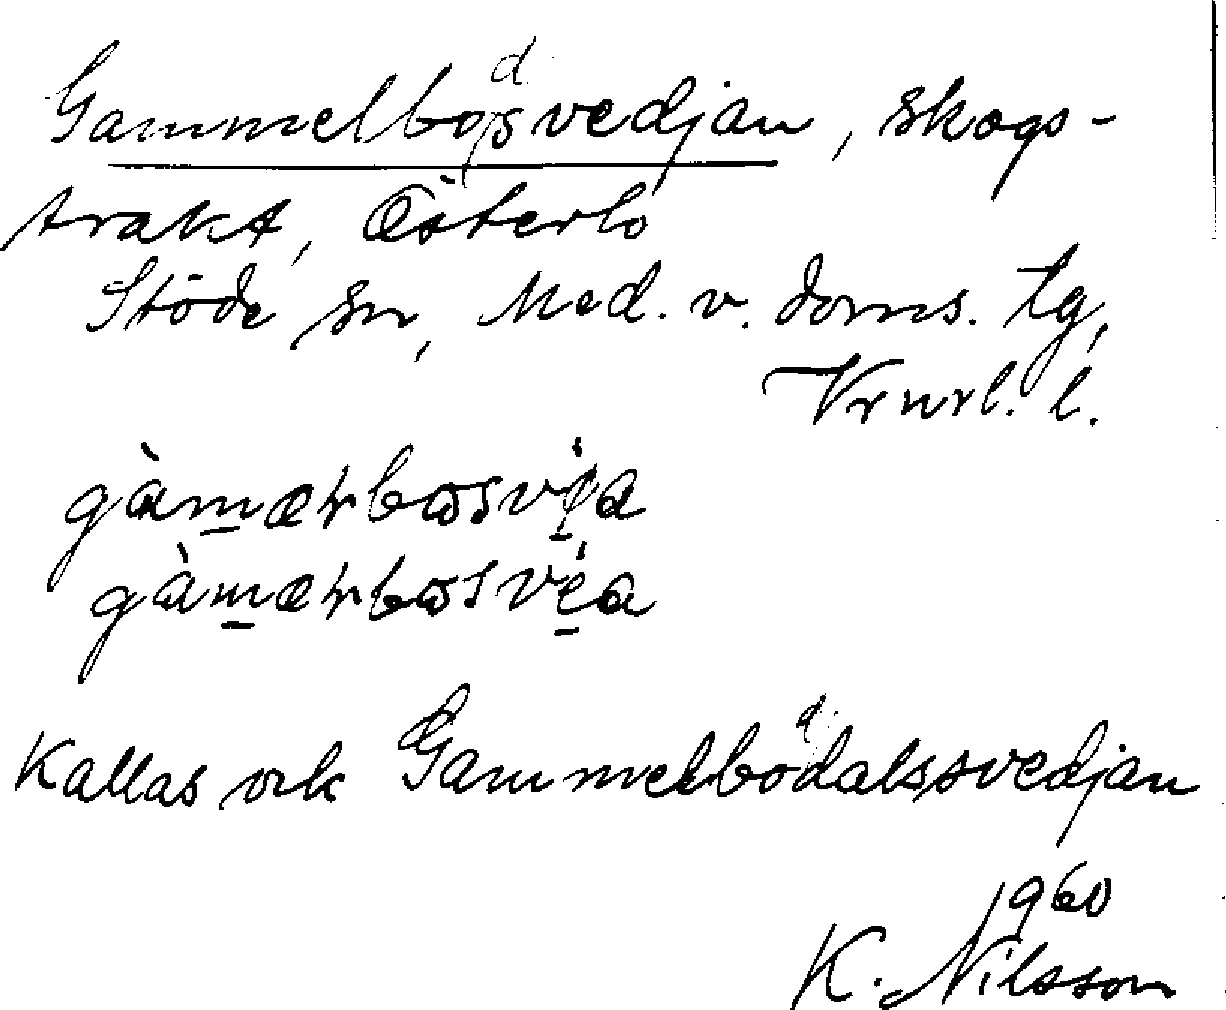 Gammelbodsvedjan, skogs-
trakt, Österlo
Stöde sn, Med. v. doms. tg,
Vrnrl. l.
gàmərbosvéa
gàmərbosvéa
Kallas ock Gammelboddalssvedjan
1960
K. Nilsson